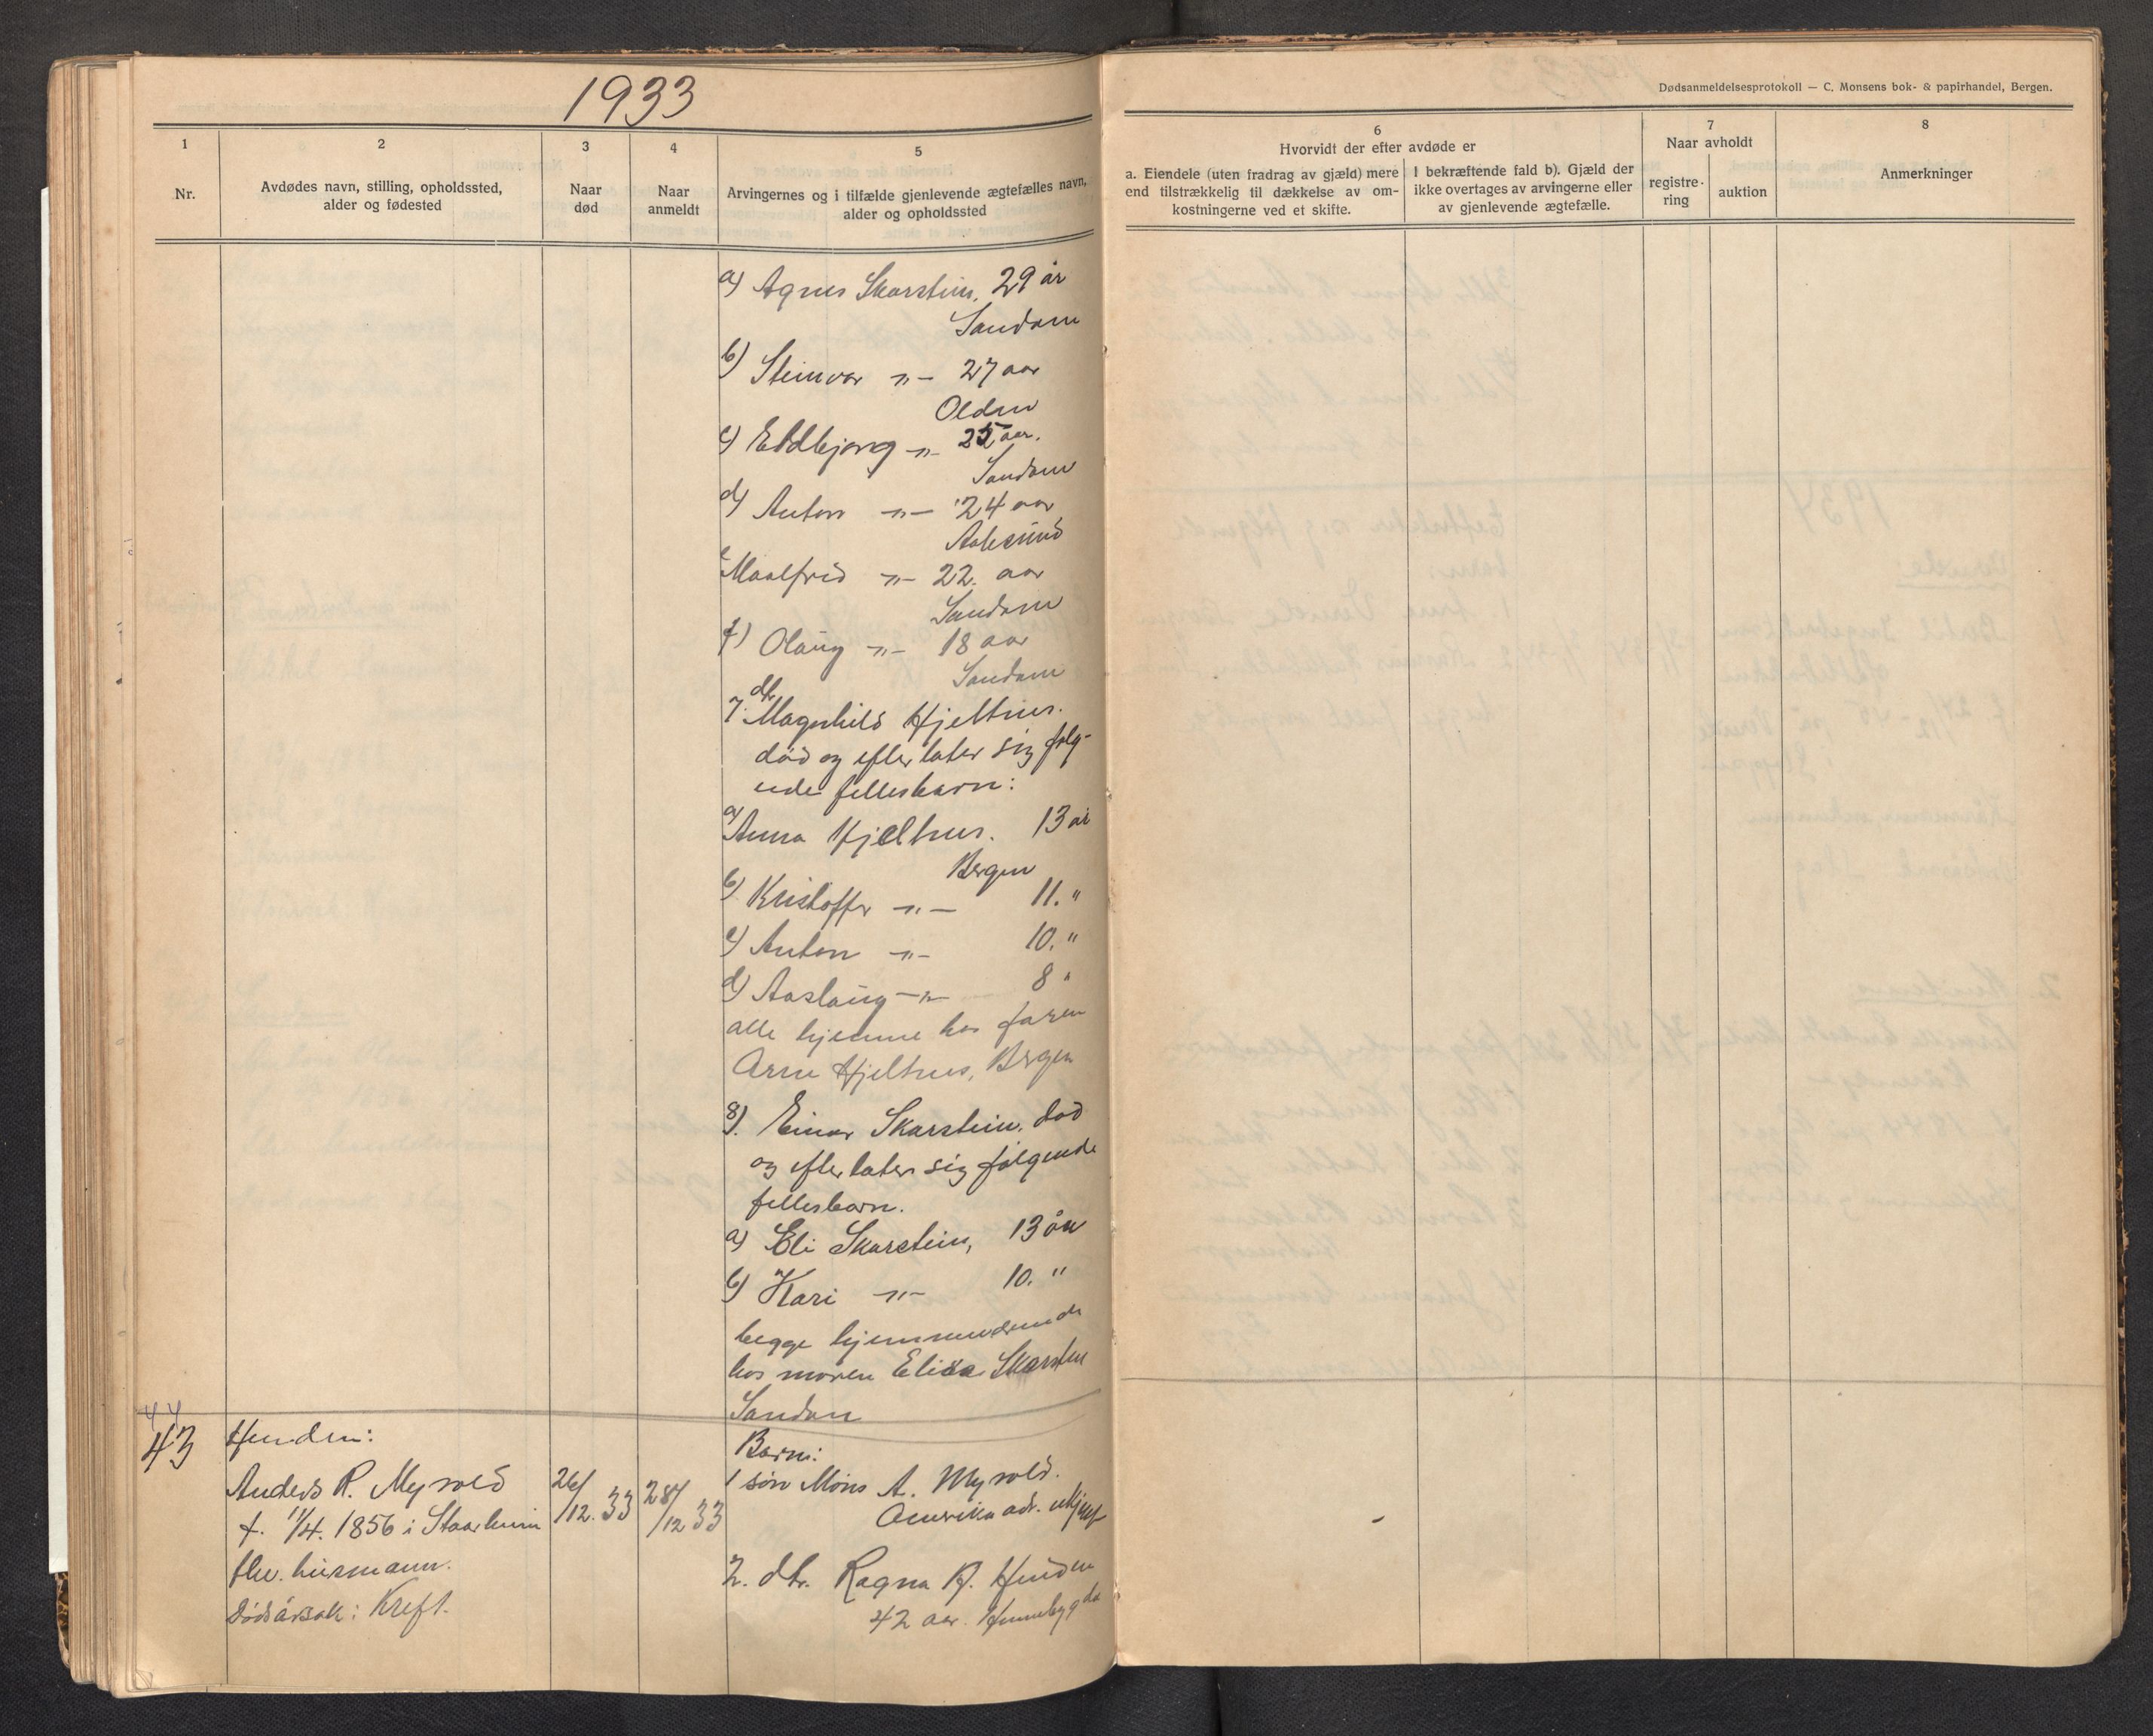 1933
Dødsanmeldelsesprotokoll — C. Monsens bok- & papirhandel, Bergen.
1
Nr.
2
Avdødes navn, stilling, opholdssted,
alder og fødested
3
Naar
død
4
Naar
anmeldt
5
Arvingernes og i tilfælde gjenlevende ægtefælles navn,
alder og opholdssted
6
Hvorvidt der efter avdøde er
a. Eiendele (uten fradrag av gjæld) mere
end tilstrækkelig til dækkelse av om-
kostningerne ved et skifte.
I bekræftende fald b). Gjæld der
ikke overtages av arvingerne eller
av gjenlevende ægtefælle.
7
Naar avholdt
registre-
ring
auktion
8
Anmerkninger
a) Agnes Skarstein, 29 år
Sandane
b) Steinvor -"- 27 aar
Olden
c) Eldbjørg -"- 25 aar.
Sandane
d) Anton -"- 24 aar
Aalesund
e Maalfrid -"- 22. aar
Sandane
f) Olaug -"- 18 aar
Sandane
7. dtr Magnhild Hjeltnes.
død og efterlater sig følg-
ende fellesbarn:
a) Anna Hjeltnes. 13 år
Bergen
b) Kristoffer -"- 11. "
c) Anton -"- 10. "
d) Aaslaug -"- 8 "
alle hjemme hos faren
Arne Hjeltnes, Bergen
8). Einar Skarstein, død
og efterlater sig følgende
fellesbarn.
a) Eli Skarstein, 13 år
b) Kari -"- 10. "
begge hjemmeværende
hos moren Elisa Skarsten
Sandane
44
43
Henden:
Anders R. Myrold
f. 11/4. 1856 i Staarheim
fhv. husmann.
Dødsårsak: Kreft.
26/12. 33
28/12 33
Barn:
1 søn Mons A. Myrold.
Amerika adr. ukjent
2. dtr. Ragna R. Henden
42 aar. Hennebygda